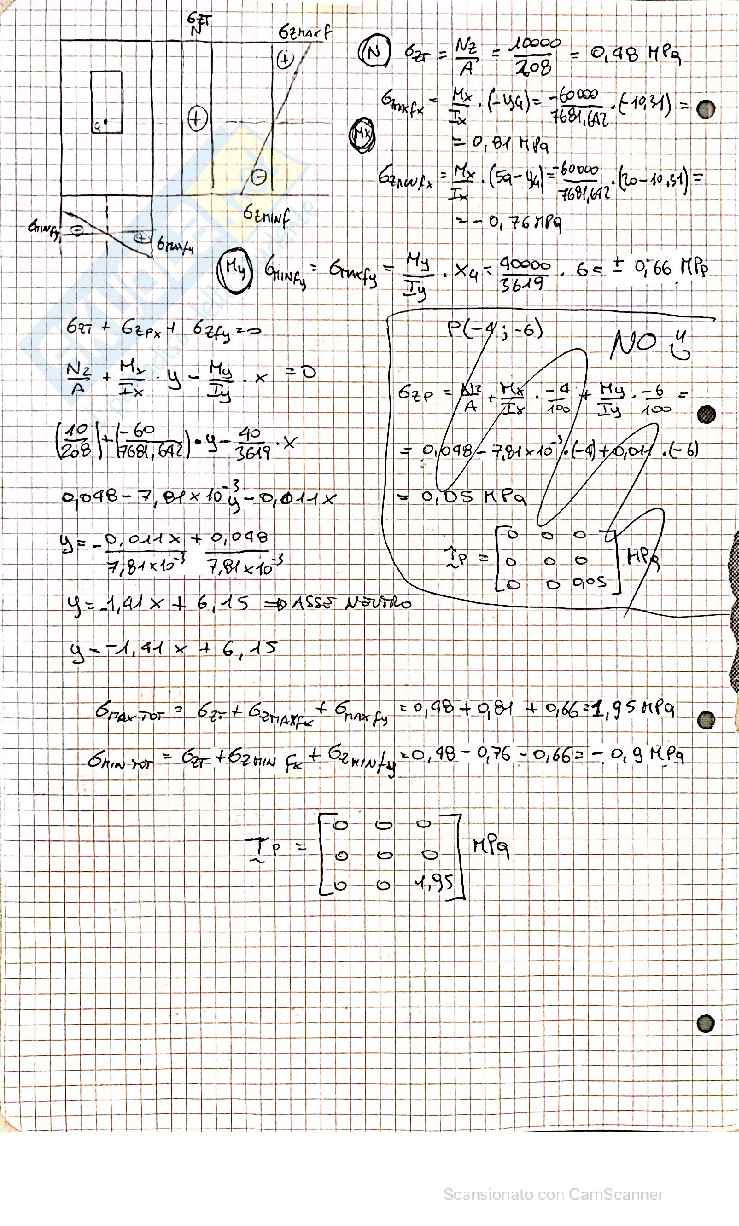 σZT
N
σZMAXF
+
+
G
-
σZMINF
σMINFy
-
+
σMAXFy
(N) σZT = NZ/A = 10000/208 = 0,48 MPa
(Mx) σMAXFx = Mx/Ix · (-yG) = -60000/7681,642 · (-10,31) =
= 0,81 MPa
σZMINFx = Mx/Ix · (20-yG) = -60000/7681,642 · (20-10,31) =
= -0,76 MPa
(My) σMINFy = σMAXFy = My/Iy · XG = 40000/3619 · 6 = ± 0,66 MPa
σZT + σZFx + σZFy = 0
NZ/A + Mx/Ix · y - My/Iy · x = 0
(10/208) + (-60/7681,642) · y - 40/3619 · x
0,048 - 7,81x10⁻³ y - 0,011x
y = -0,011x/7,81x10⁻³ + 0,048/7,81x10⁻³
y = -1,41x + 6,15 ⇒ ASSE NEUTRO
y = -1,41x + 6,15
P(-4; -6) NO
σZP = NZ/A + Mx/Ix · -4/100 + My/Iy · -6/100 =
= 0,048 - 7,81x10⁻³ · (-4) + 0,011 · (-6)
= 0,05 MPa
TP = [0 0 0
0 0 0
0 0 0,05] MPa
σMAX TOT = σZT + σZMAXFx + σMAXFy = 0,48 + 0,81 + 0,66 = 1,95 MPa
σMIN TOT = σZT + σZMIN Fx + σZMINFy = 0,48 - 0,76 - 0,66 = -0,9 MPa
TP = [0 0 0
0 0 0
0 0 1,95] MPa
Scansionato con CamScanner